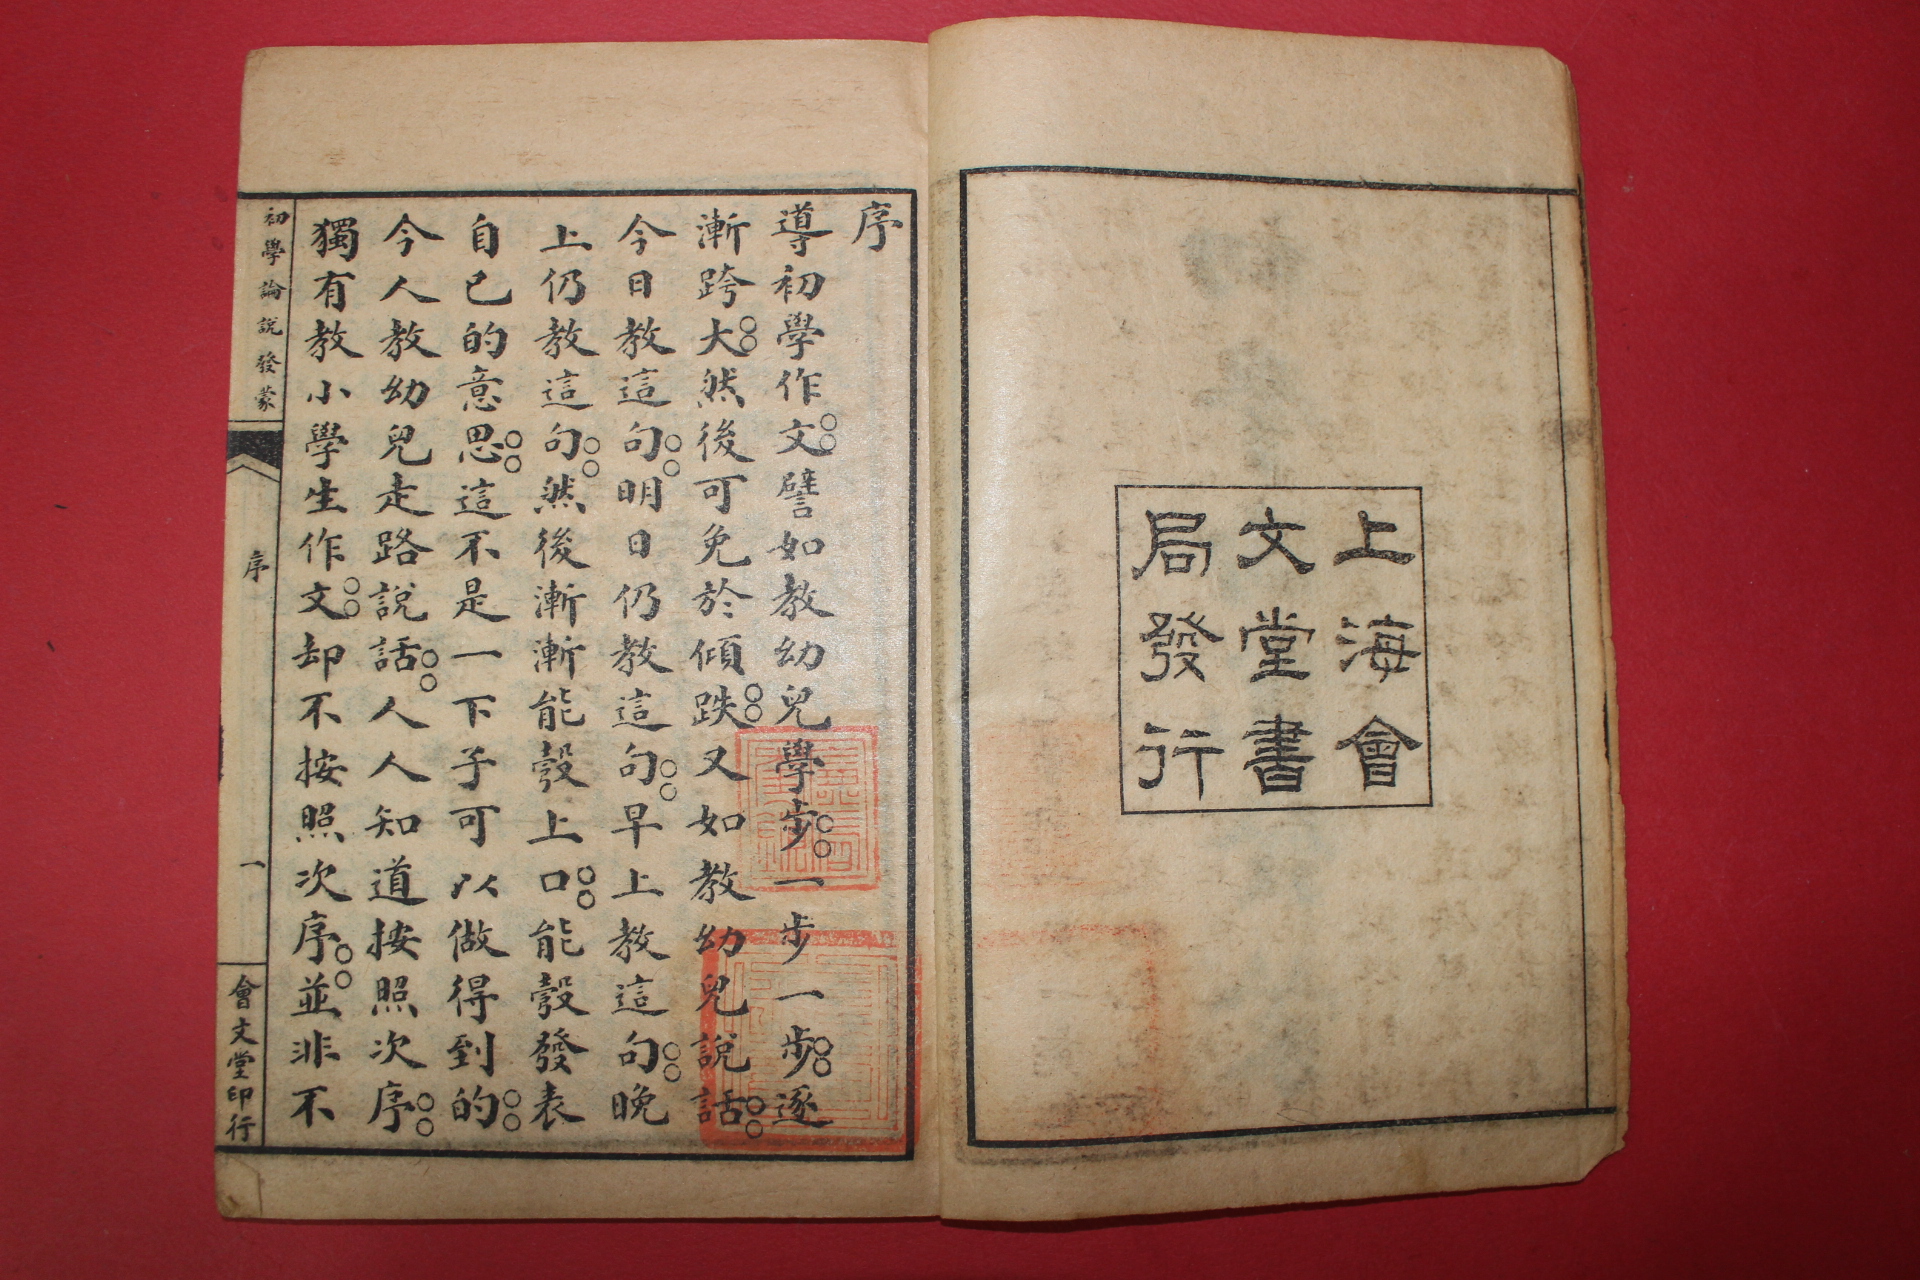 上海會
文堂書
局發行
序
導初學作文○○譬如教幼兒學步○○一步一步○○逐
漸跨大○○然後可免於傾跌○○又如教幼兒說話○○
今日教這句○○明日仍教這句○○早上教這句○○晚
上仍教這句○○然後漸漸能彀上口○○能彀發表
自已的意思○○這不是一下子可以做得到的○○
今人教幼兒走路說話○○人人知道按照次序○○
獨有教小學生作文○○却不按照次序○○並非不
初學論說發蒙
序
一
會文堂印行